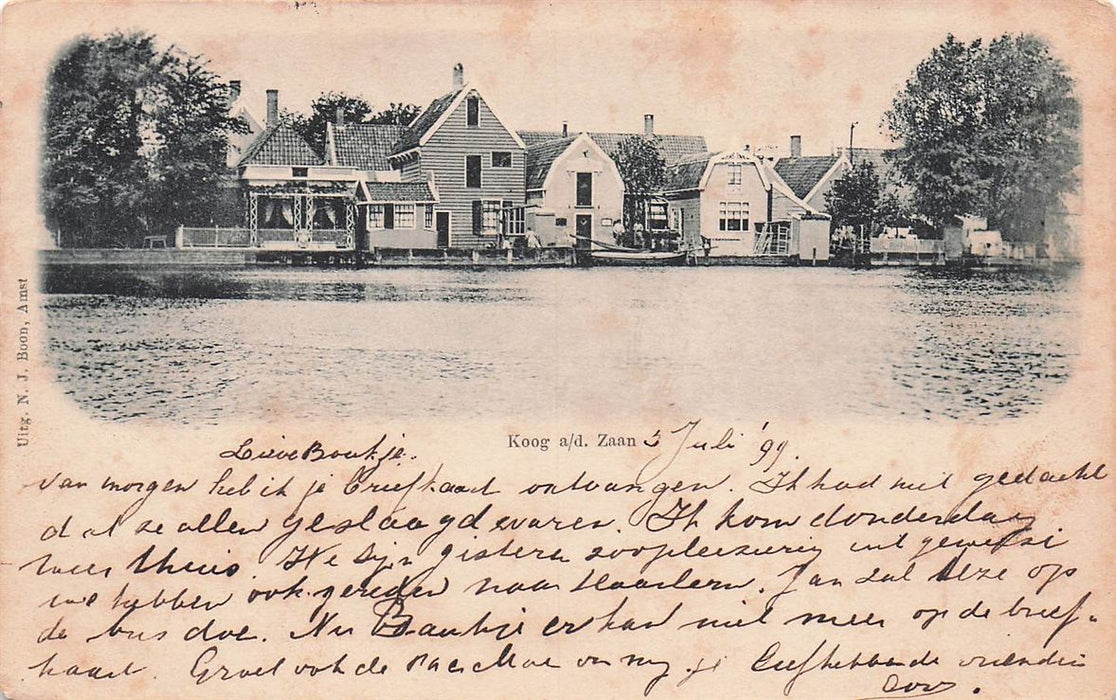 Uitg. N. J. Boon, Amst
Koog a/d. Zaan 5 Juli '99
Lieve Boukje.
Van morgen heb ik je briefkaart ontvangen. Ik had niet gedacht
dat ze allen geslaagd waren. Ik kom donderdag
weer thuis. We zijn gisteren zoo pleizierig uit geweest
we hebben ook gereden naar Haarlem. Jan zal deze op
de bus doe. Nu Boukje er kan niet meer op de brief-
kaart. Groet ook de van mij. je liefhebbende vriendin